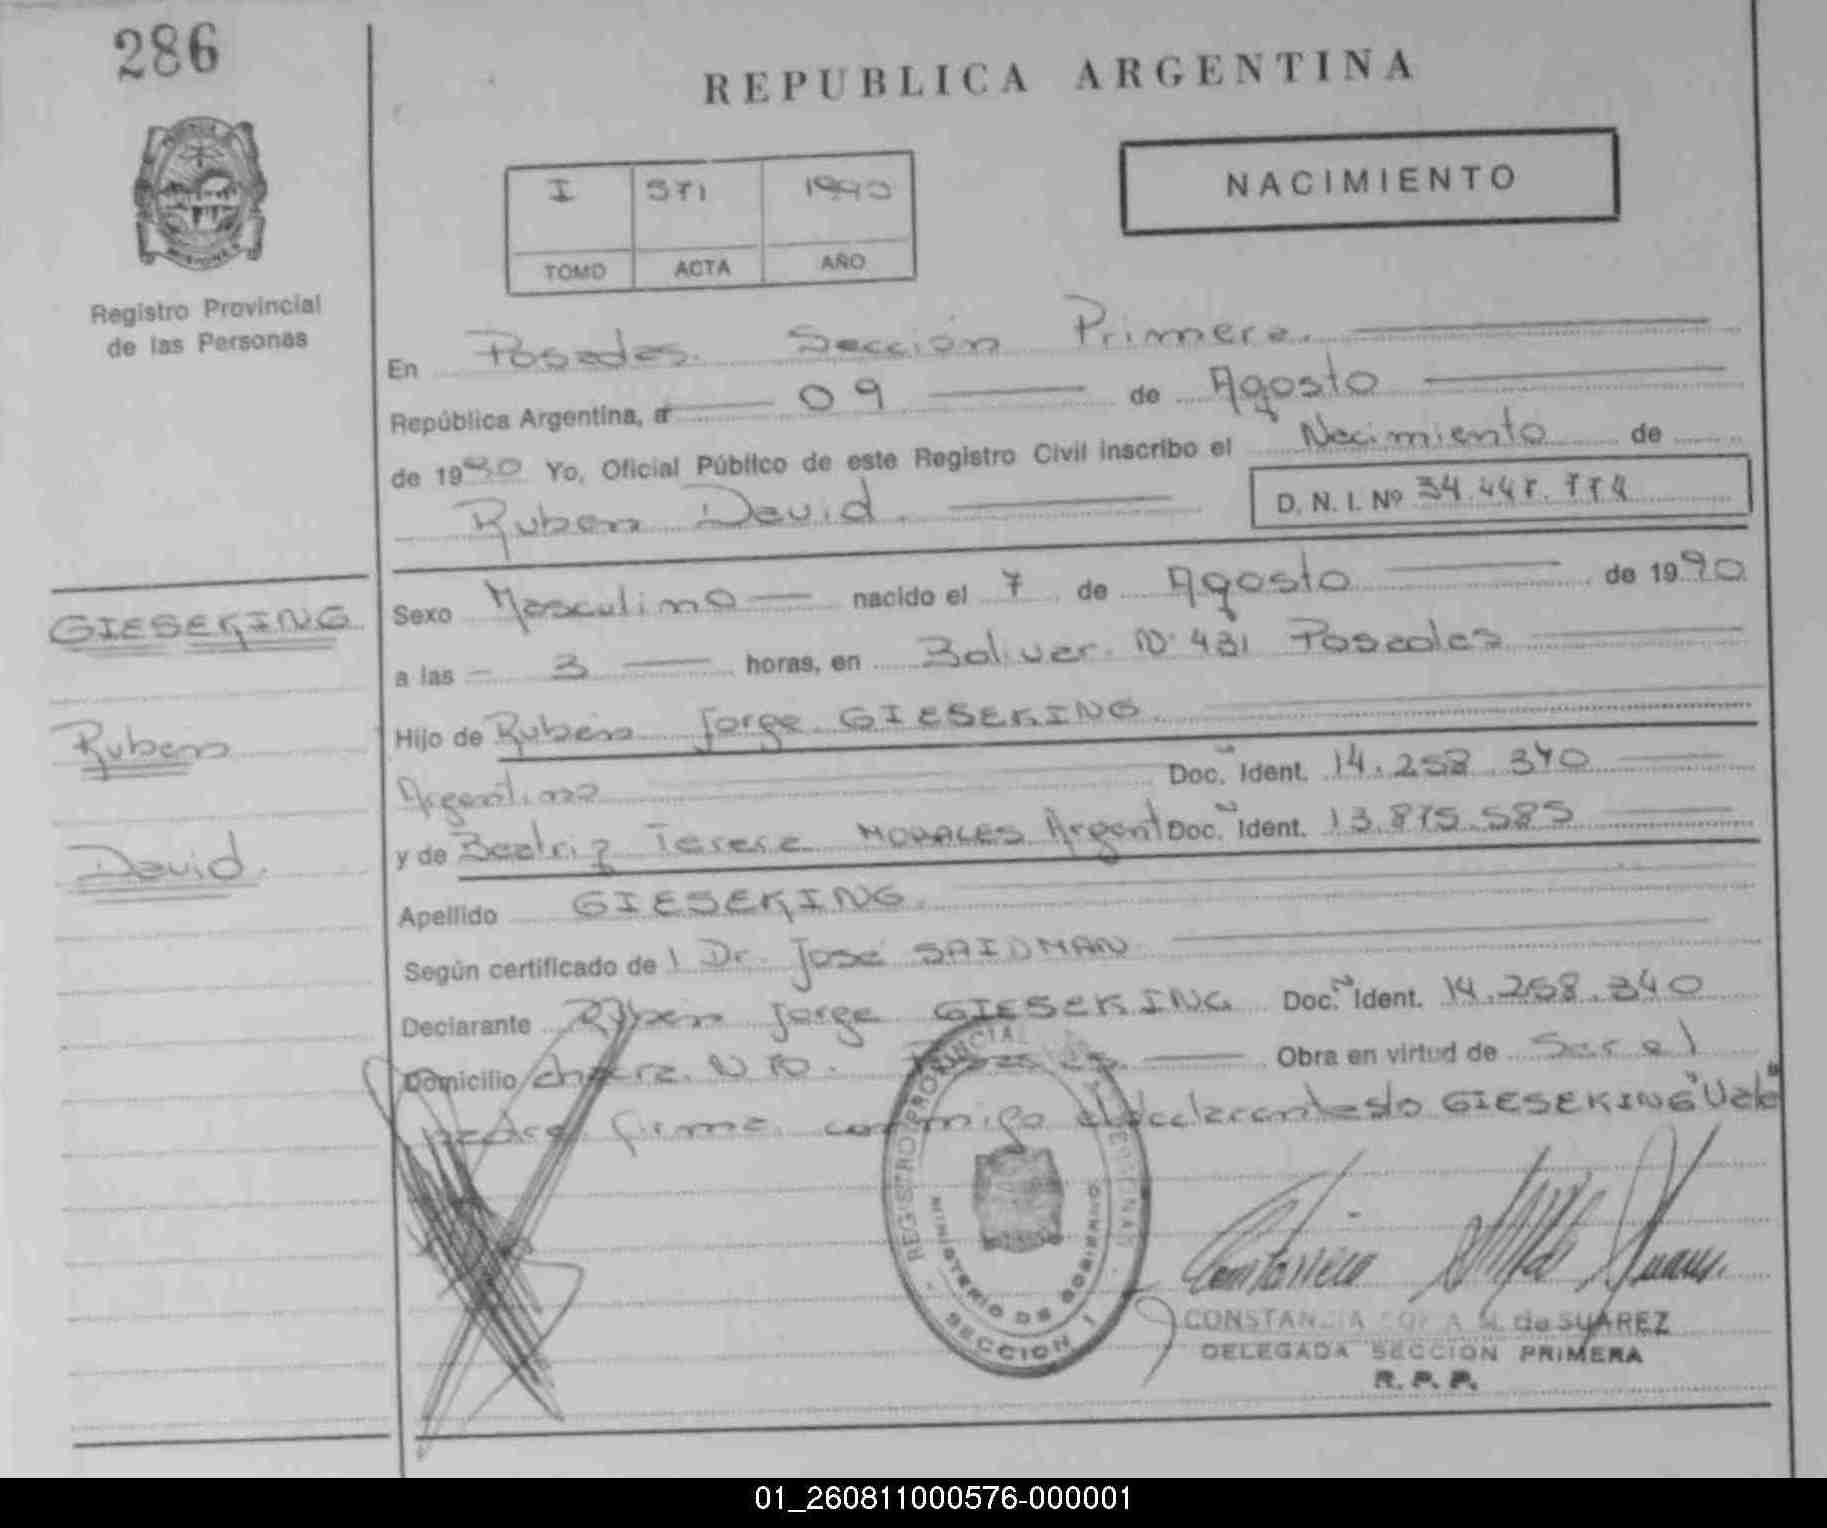 286
REPUBLICA ARGENTINA
NACIMIENTO
I 571 1990
TOMO ACTA AÑO
Registro Provincial
de las Personas
En Posadas. Sección Primera.
República Argentina, a 09 de Agosto
de 1990 Yo, Oficial Público de este Registro Civil inscribo el Nacimiento de
Ruben David.
D. N. I. Nº
GIESEKING
Ruben
David.
Sexo Masculino nacido el 7 de Agosto de 1990
a las 3 horas, en Bolivar. Nº 431 Posadas
Hijo de Ruben Jorge GIESEKING
Argentino Doc. Ident. 14.258.340
y de Beatriz Teresa MORALES Argent Doc. Ident. 13.875.585
Apellido GIESEKING.
Según certificado de l Dr. José SAIDMAN
Declarante Ruben Jorge GIESEKING Doc. Ident. 14.258.340
Domicilio chacra. N Obra en virtud de Ser el
padre. firma conmigo el declarante GIESEKING "Vale"
REGISTRO PROVINCIAL
MINISTERIO DE GOBIERNO
SECCION 1
CONSTANCIA M. de SUAREZ
DELEGADA SECCION PRIMERA
R. P. P.
01_260811000576-000001